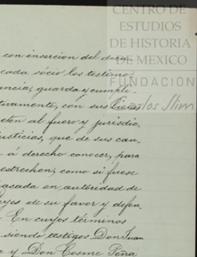 CENTRO DE
ESTUDIOS
DE HISTORIA
DE MEXICO
FUNDACIÓN
Carlos Slim
con insercion del
cada sócio los testimo
ancia, guarda y cumpli
tivamente, con sus bienes
eten al fuero y jurisdic
usticias, que de sus cau
á derecho conocer, para
estrechen, como si fuese
pasada en autoridad de
yes de su favor y defen
En cuyos términos
siendo testigos Don Juan
y Don Cosme Peña